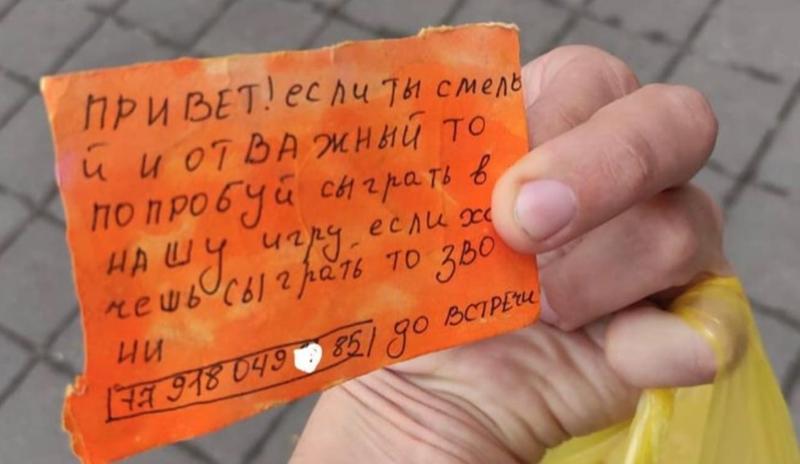 ПРИВЕТ! если ты смелы
й и отважный то
попробуй сыграть в
нашу игру если хо
чешь сыграть то зво
ни
+7 918 049 85 до встречи